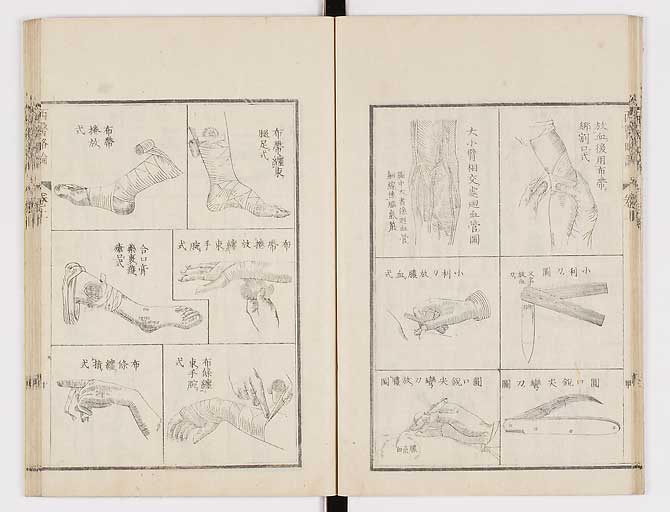 放血後用布帶
綁割口式
大小臂相交處迴血管圖
迴血管
小利刀圖
小利刀放膿血式
圓口銳尖彎刀圖
圓口銳尖彎刀放膿圖
布帶纏束
腿足式
布帶
捲放
式
布帶捲放纏束手腕式
合口膏
藥裹護
瘡口式
布條纏
束手腕
式
布條纏式
西醫略論